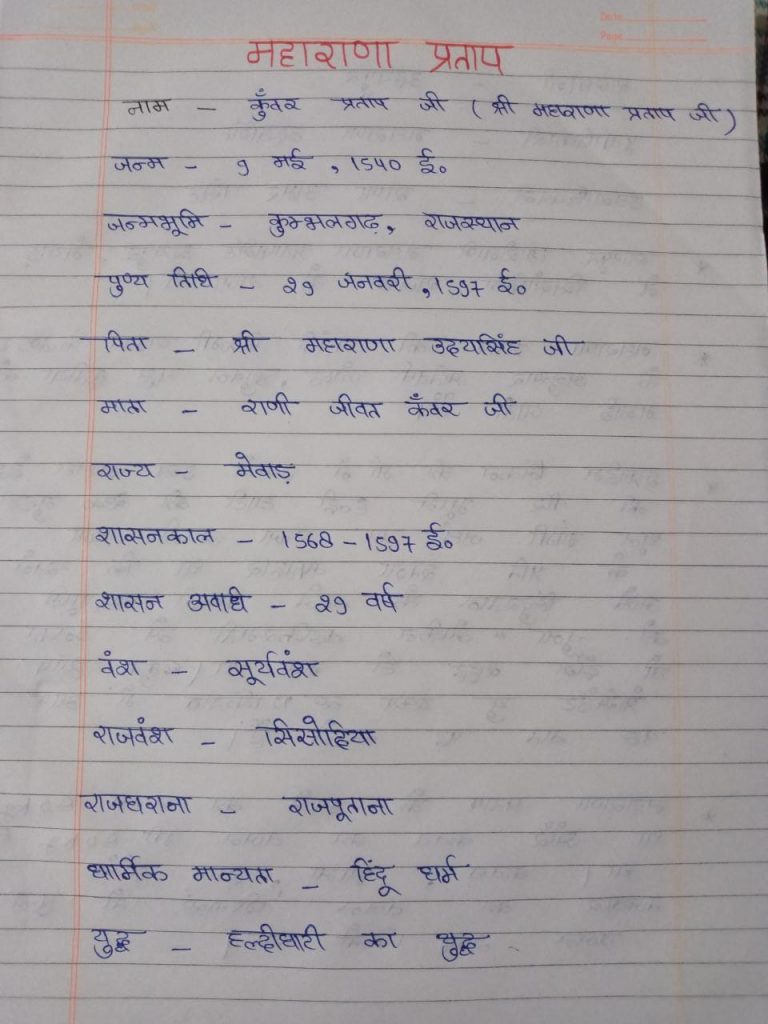 Date
Page
महाराणा प्रताप
नाम - कुँवर प्रताप जी ( श्री महाराणा प्रताप जी )
जन्म - 9 मई , 1540 ई०
जन्मभूमि - कुम्भलगढ़, राजस्थान
पुण्य तिथि - 29 जनवरी , 1597 ई०
पिता - श्री महाराणा उदयसिंह जी
माता - राणी जीवत कँवर जी
राज्य - मेवाड़
शासनकाल - 1568 - 1597 ई०
शासन अवधि - 29 वर्ष
वंश - सूर्यवंश
राजवंश - सिसोदिया
राजघराना - राजपूताना
धार्मिक मान्यता - हिंदू धर्म
युद्ध - हल्दीघाटी का युद्ध